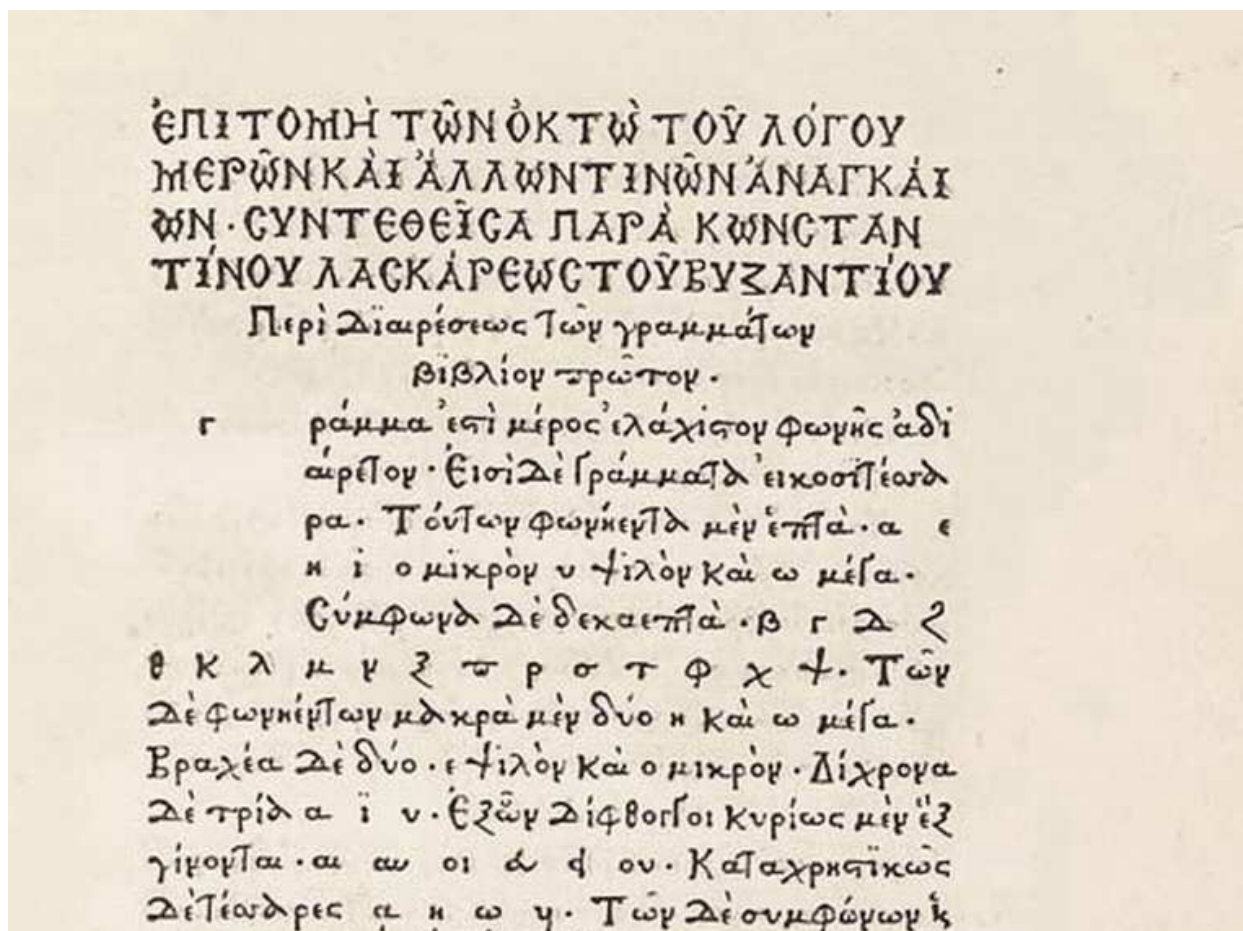 ἘΠΙΤΟΜῊ ΤΩ͂Ν ὈΚΤῺ ΤΟΥ͂ ΛΌΓΟΥ
ΜΕΡΩ͂Ν ΚΑῚ ἌΛΛΩΝ ΤΙΝΩ͂Ν ἈΝΑΓΚΑΊ
ΩΝ · ϹΥΝΤΕΘΕΙ͂ϹΑ ΠΑΡᾺ ΚΩΝϹΤΑΝ
ΤΊΝΟΥ ΛΑϹΚΆΡΕΩϹ ΤΟΥ͂ ΒΥΖΑΝΤΊΟΥ
Περὶ Δϊαιρέσεως τῶν γραμμάτων
βιβλίον πρῶτον ·
Γ ράμμα ἐστὶ μέρος ἐλάχιστον φωνῆς ἀδι
αίρετον · Εἰσὶ Δὲ γράμματα εἰκοσιτέσσα
ρα · Τόυτων φωνήεντα μὲν ἑπτὰ · α ε
η ι ο μικρὸν υ ψιλὸν καὶ ω μέγα ·
Ϲύμφωνα Δὲ δεκαεπτὰ · β γ Δ ζ
θ κ λ μ ν ξ π ρ σ τ φ χ ψ · Τῶν
Δὲ φωνηέντων μακρὰ μὲν δύο η καὶ ω μέγα ·
Βραχέα Δὲ δύο · ε ψιλὸν καὶ ο μικρὸν · Δίχρονα
Δὲ τρία α ϊ υ · Ἐξῶν Δίφθογγοι κυρίως μὲν ἓξ
γίνονται · αι αυ οι ει ευ ου · Καταχρηστϊκῶς
Δὲ τέσσαρες ᾳ ῃ ῳ υι · Τῶν Δὲ συμφώνων